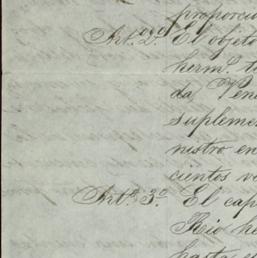 proporcio
Art.º 2.º El objeto
herm.º t
da Ven
suplemen
nistro en
cientos v
Art.º 3.º El cap
Rio he
hasta